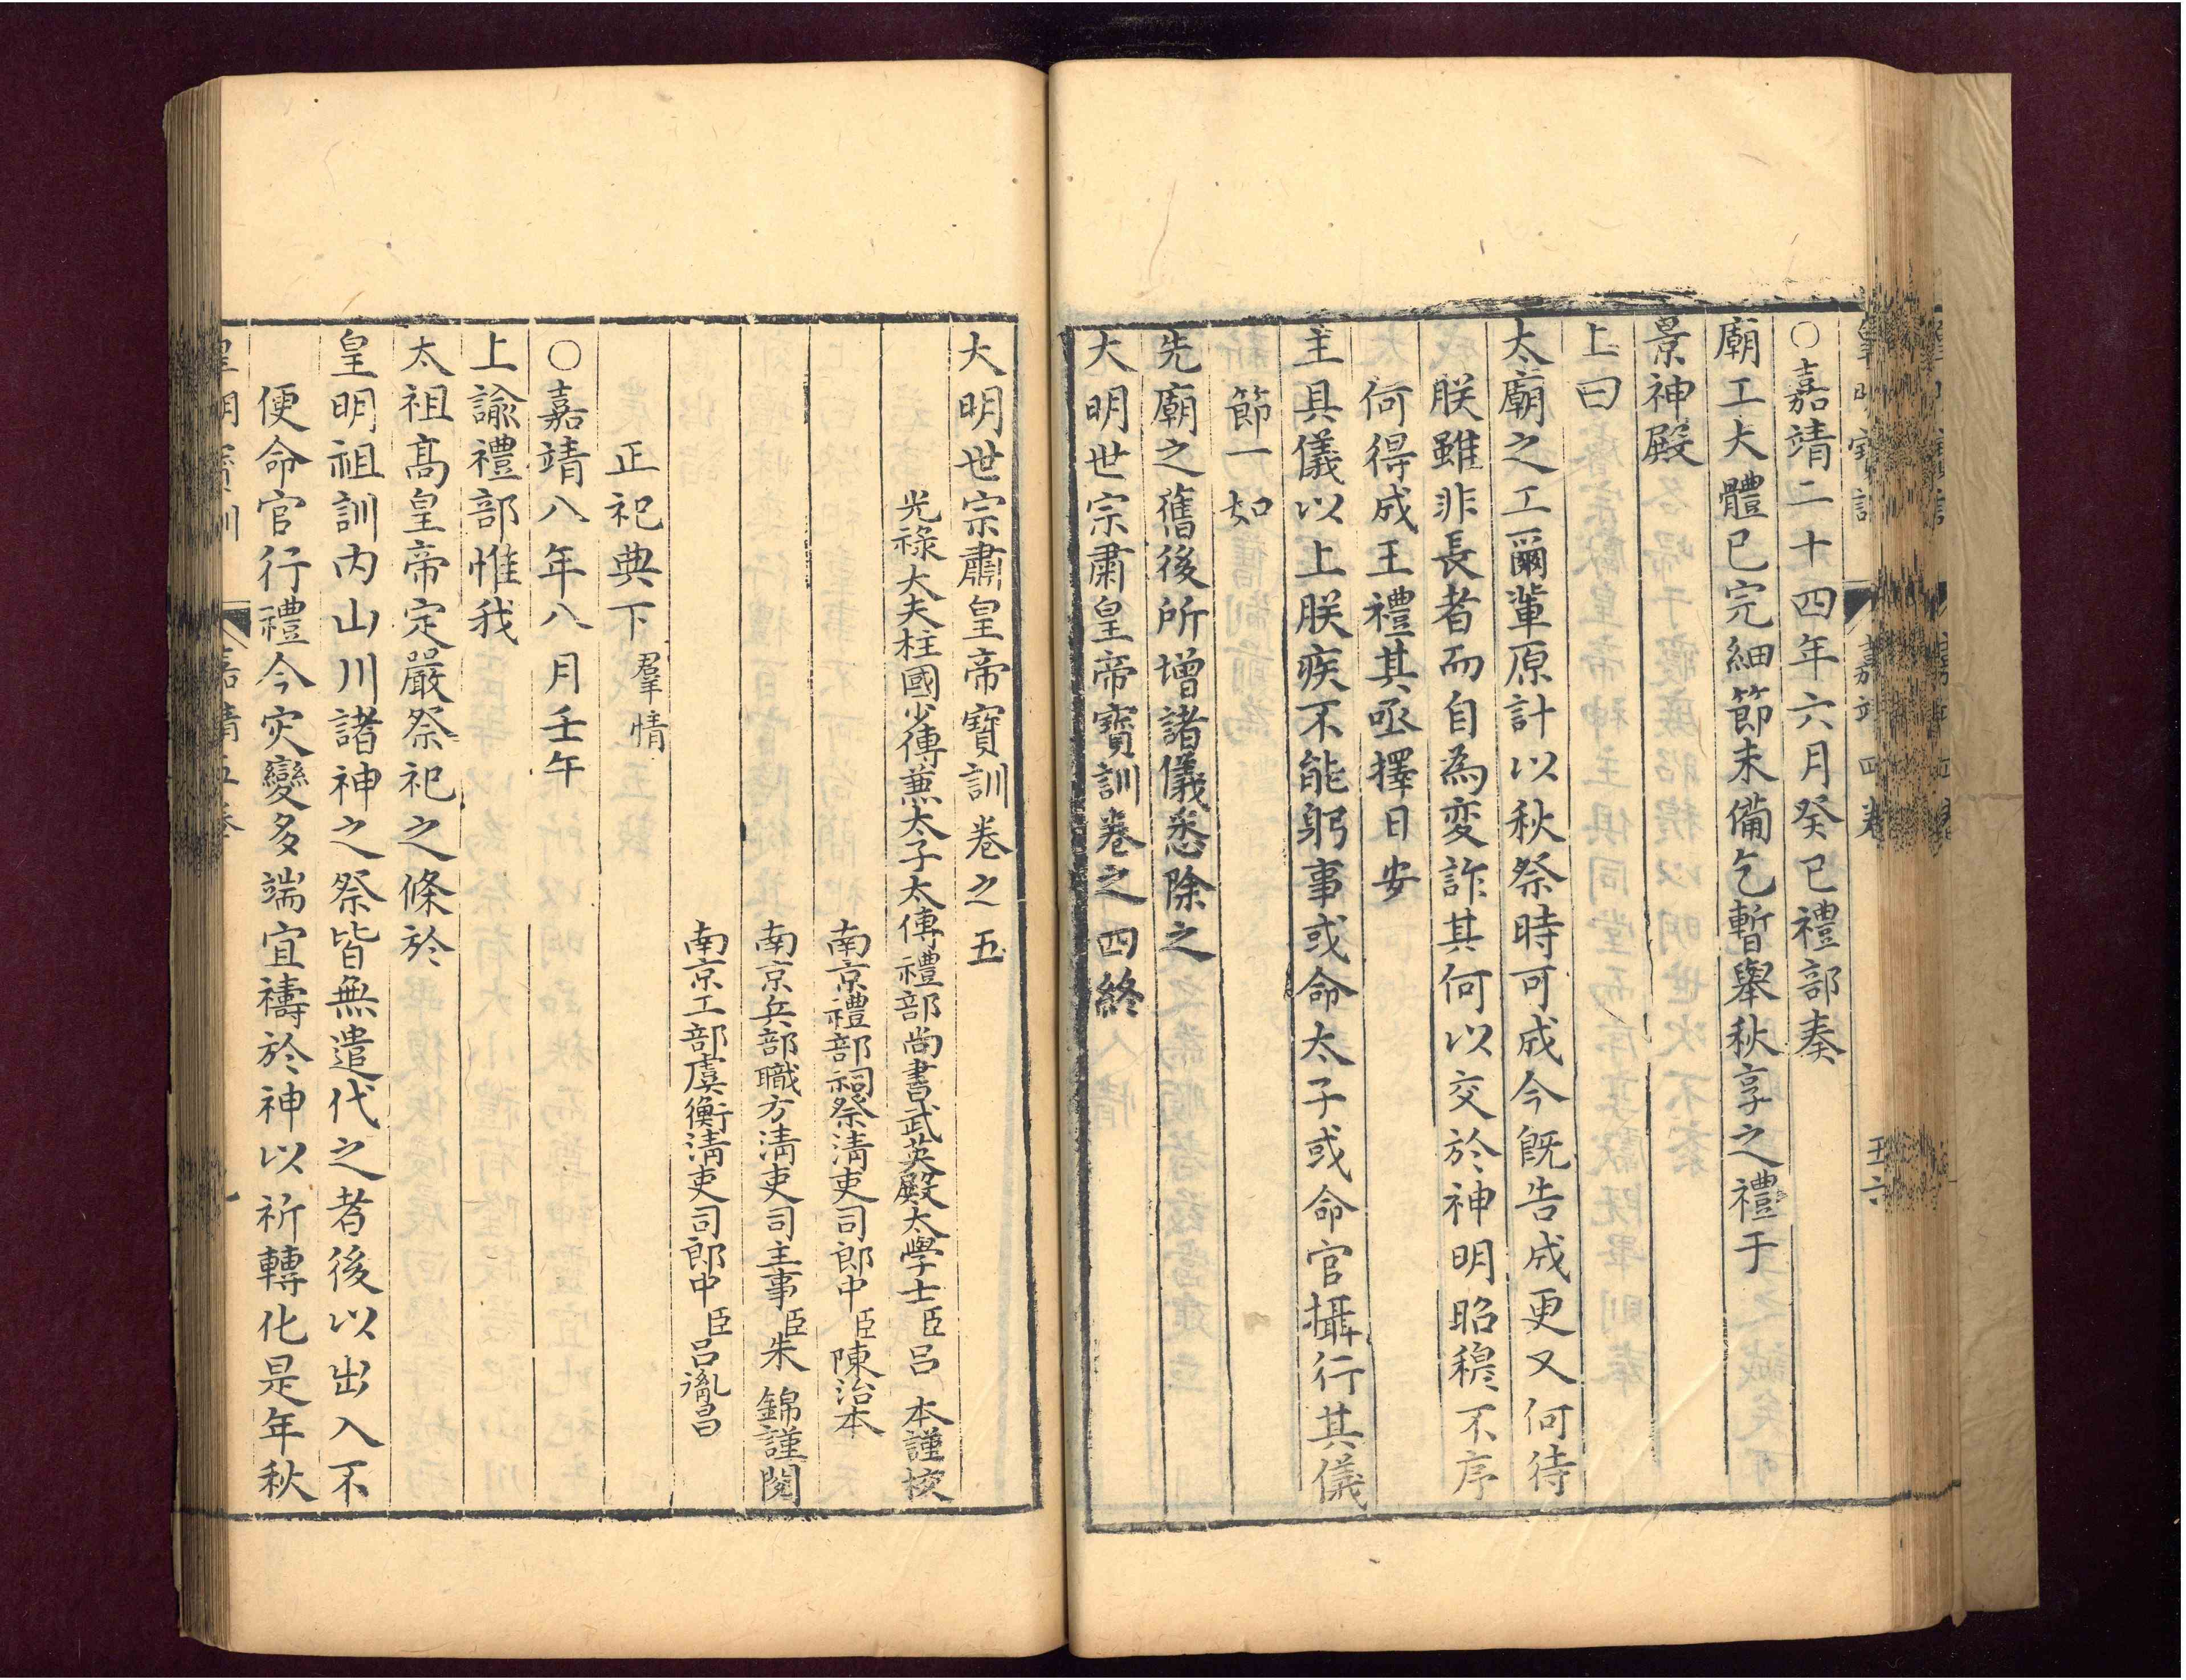 ○嘉靖二十四年六月癸巳禮部奏
廟工大體已完細節未備乞暫舉秋享之禮于
景神殿
上曰
太廟之工爾輩原計以秋祭時可成今旣告成更又何待
朕雖非長者而自為変詐其何以交於神明昭穆不序
何得成王禮其亟擇日安
主具儀以上朕疾不能躬事或命太子或命官攝行其儀
節一如
先廟之舊後所增諸儀悉除之
大明世宗肅皇帝寶訓卷之四終
大明世宗肅皇帝寶訓卷之五
光祿大夫柱國少傅兼太子太傅禮部尚書武英殿大學士臣呂本謹校
南京禮部祠祭淸吏司郎中臣陳治本
南京兵部職方淸吏司主事臣朱錦謹閱
南京工部虞衡淸吏司郎中臣呂胤昌
正祀典下 羣情
○嘉靖八年八月壬午
上諭禮部惟我
太祖高皇帝定嚴祭祀之條於
皇明祖訓內山川諸神之祭皆無遣代之者後以出入不
便命官行禮今灾變多端宜禱於神以祈轉化是年秋